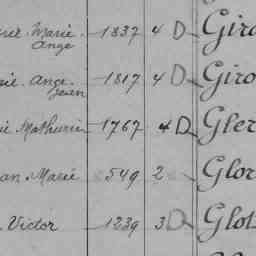 Marie 1837 4 D Giro
Ange
Ange 1817 4 D Giro
Jean
Mathurin 1767 4 D Gler
an Marie 549 2 Glor
Victor 1239 3 D Glot